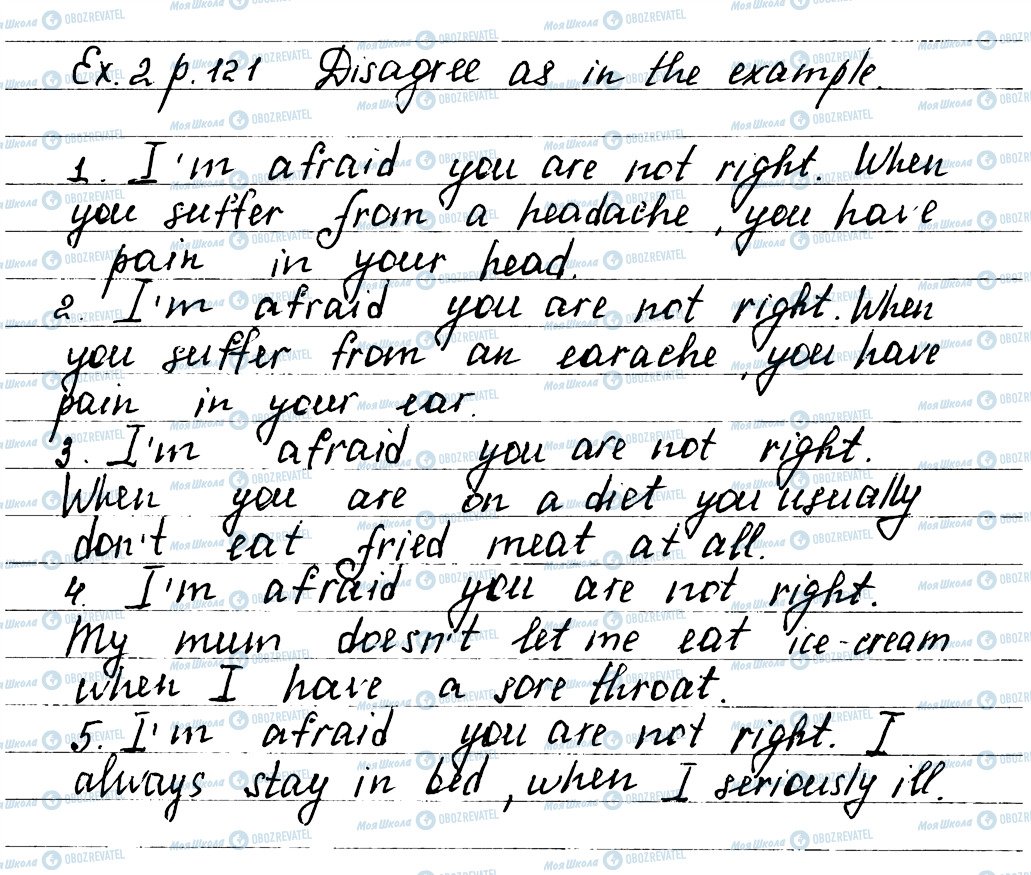 Ex. 2 p. 121 Disagree as in the example.
1. I'm afraid you are not right. When
you suffer from a headache, you have
pain in your head.
2. I'm afraid you are not right. When
you suffer from an earache, you have
pain in your ear.
3. I'm afraid you are not right.
When you are on a diet you usually
don't eat fried meat at all.
4. I'm afraid you are not right.
My mum doesn't let me eat ice-cream
when I have a sore throat.
5. I'm afraid you are not right. I
always stay in bed, when I seriously ill.
Моя Школа OBOZREVATEL